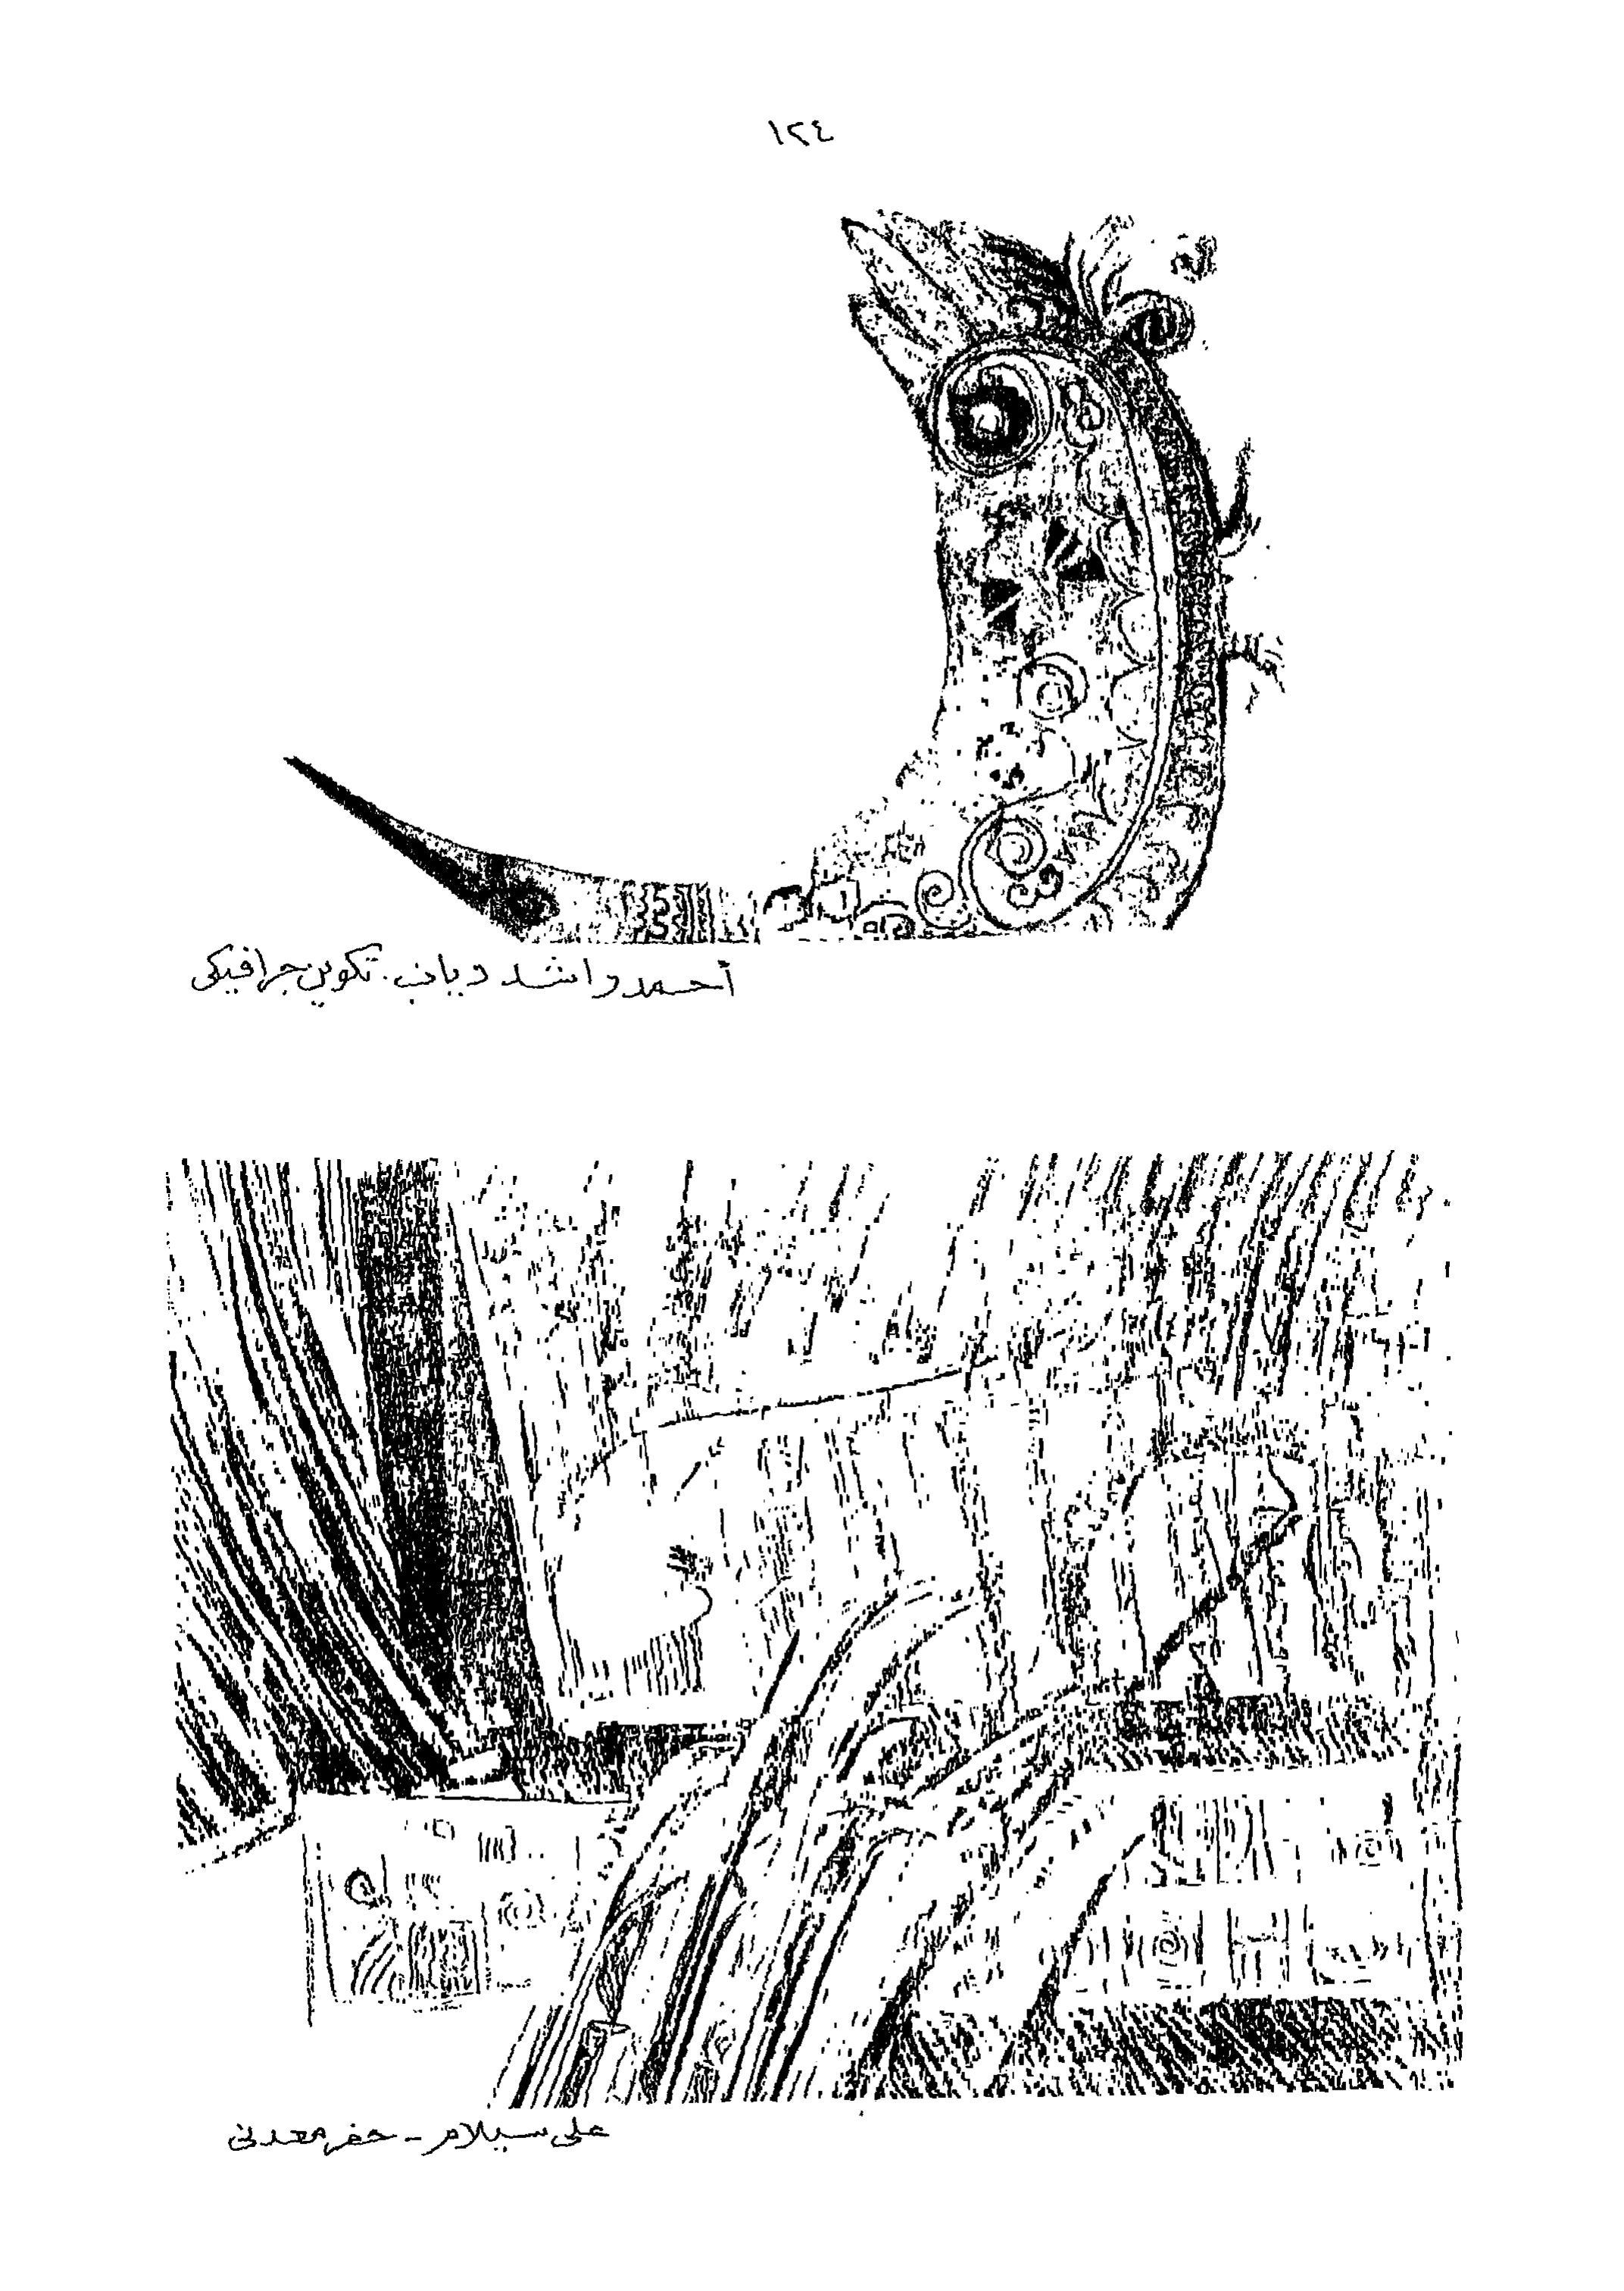 ١٢٤
أحمد راشد دياب. تكوين جرافيكى
على سلام - حفر معدنى